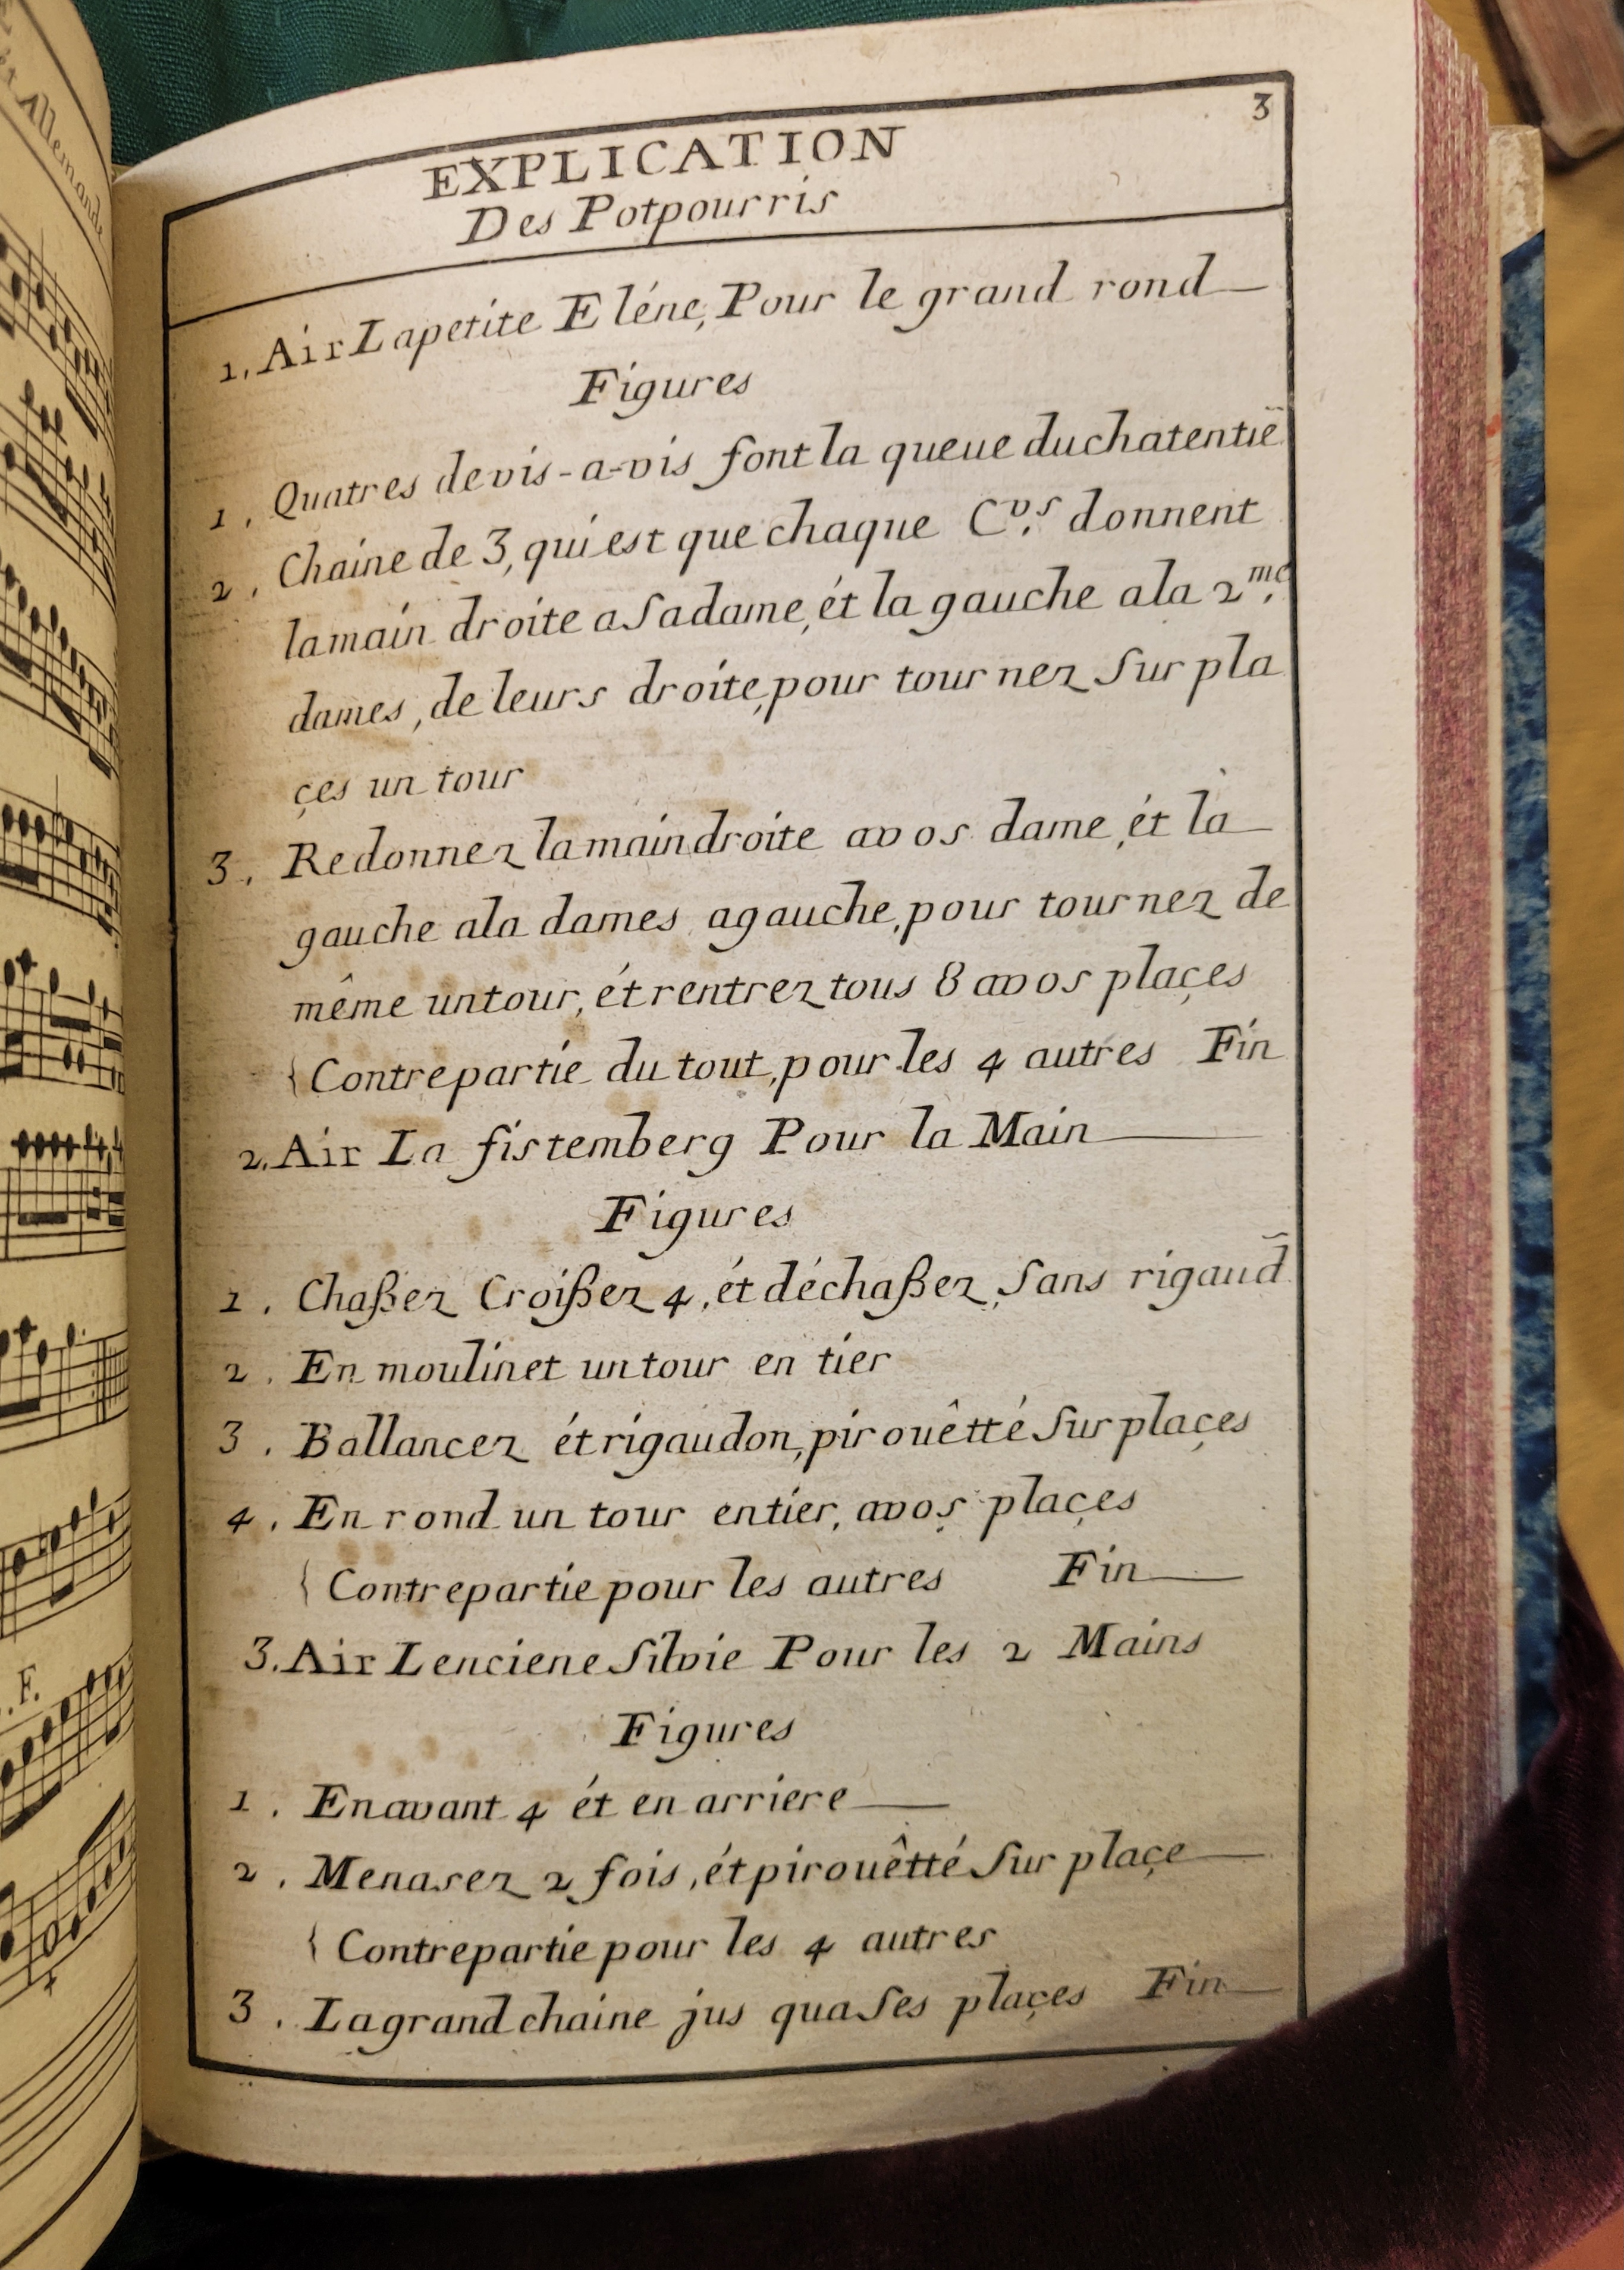 Allemande
3
EXPLICATION
Des Potpourris
1. Air Lapetite Eléne, Pour le grand rond
Figures
1. Quatres devis-a-vis font la queue duchatentiẽ
2. Chaine de 3, qui est que chaque C.vs donnent
lamain droite aSadame, ét la gauche ala 2.me
dames, de leurs droite, pour tournez Sur pla
çes un tour
3. Redonnez lamaindroite avos dame, ét la
gauche ala dames agauche, pour tournez de
même untour, ét rentrez tous 8 avos plaçes
{Contrepartie du tout, pour les 4 autres Fin
2. Air La fistemberg Pour la Main
Figures
1. Chaßez Croißez 4, ét déchaßez, Sans rigaud̃
2. En moulinet untour en tier
3. Ballancez ét rigaudon, pirouêtté Sur plaçes
4. En rond un tour entier, avos plaçes
{Contrepartie pour les autres Fin
3. Air Lenciene Silvie Pour les 2 Mains
Figures
1. Enavant 4 ét en arriere
2. Menasez 2 fois, ét pirouêtté Sur plaçe
{Contrepartie pour les 4 autres
3. Lagrand chaine jus quaSes plaçes Fin
F.